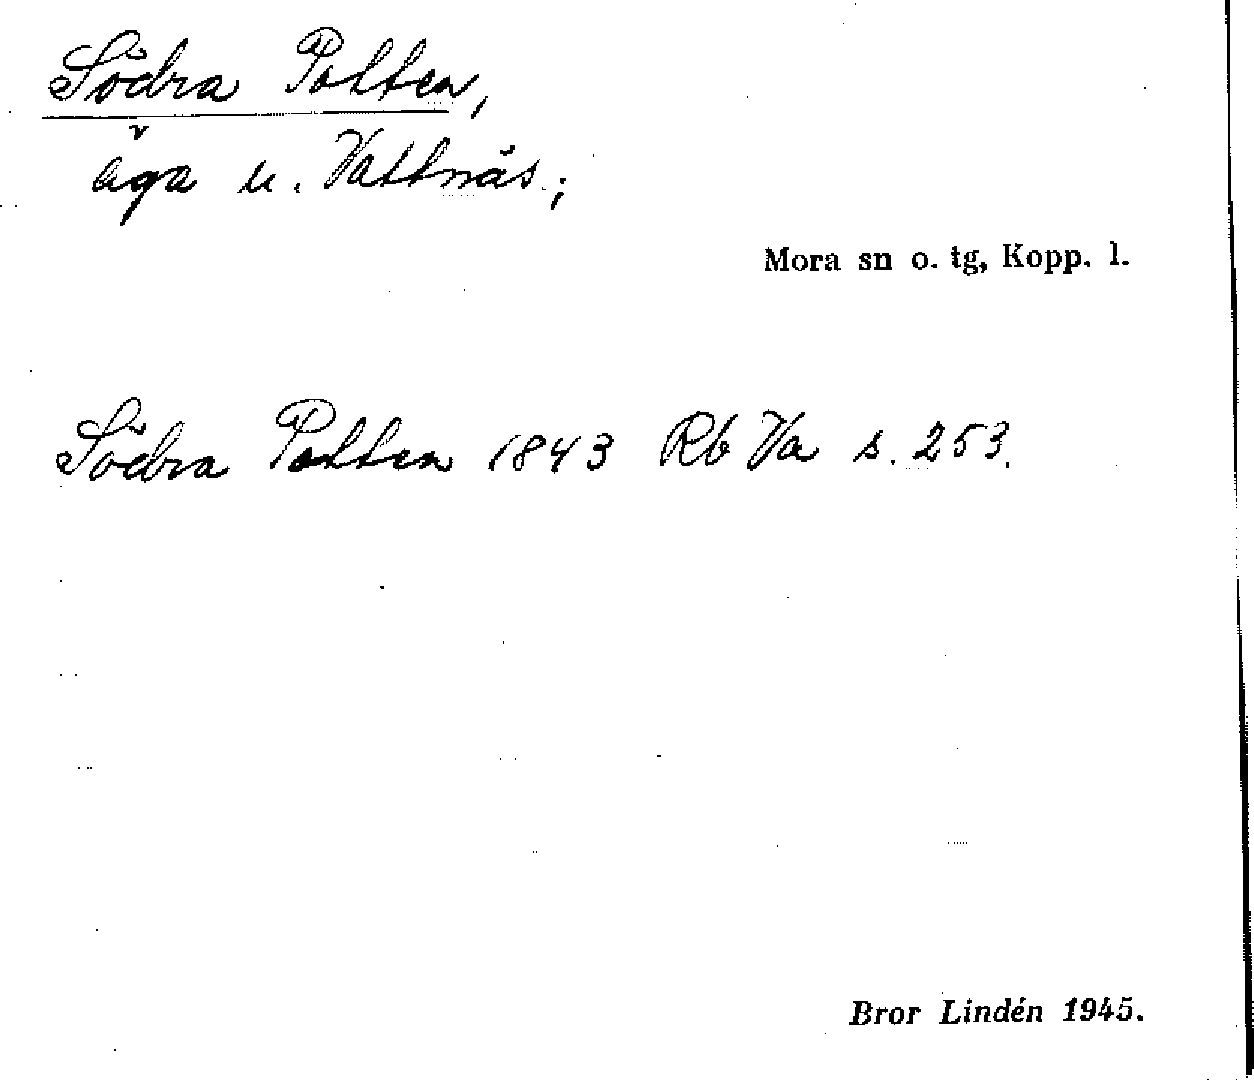 Södra Potten,
äga u. Vattnäs;
Mora sn o. tg, Kopp. l.
Södra Potten 1843 Rb Va s. 253.
Bror Lindén 1945.